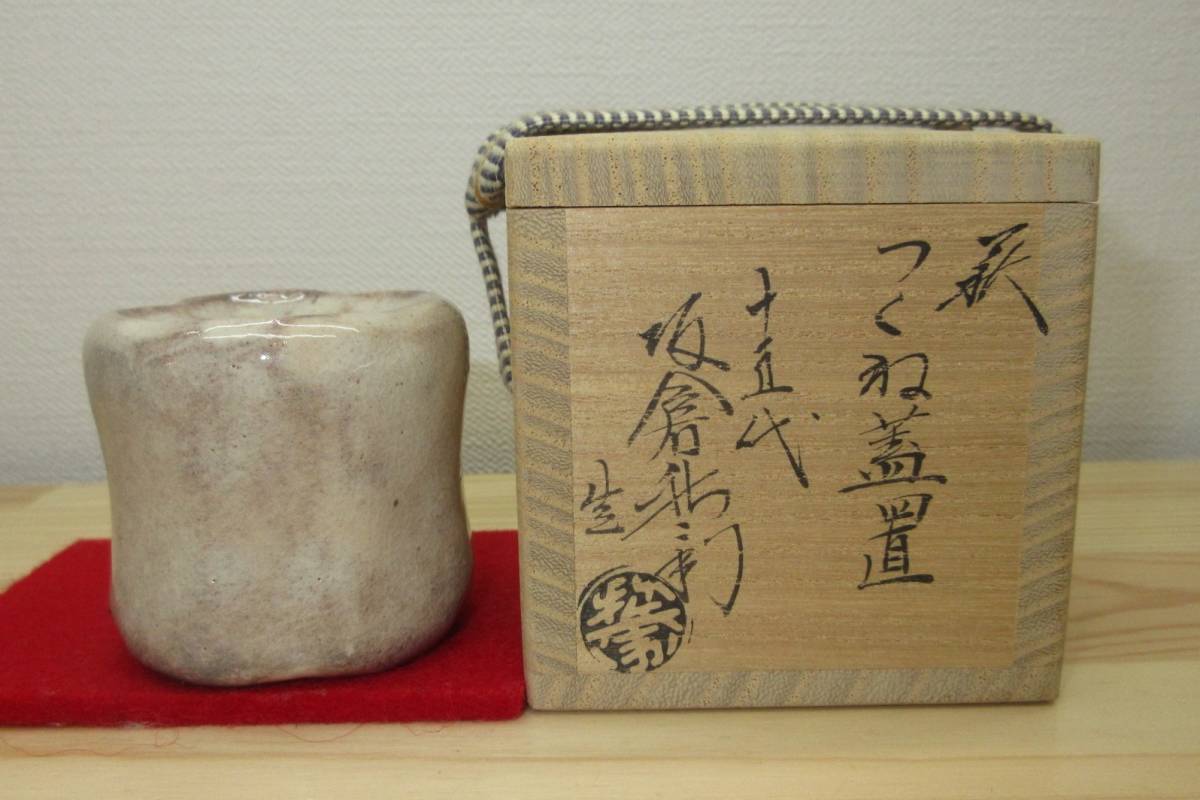 萩
つくね蓋置
十五代
坂倉新兵衛
造